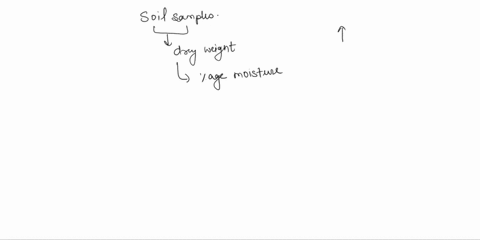 Soil samples.
dry weight
%age moisture